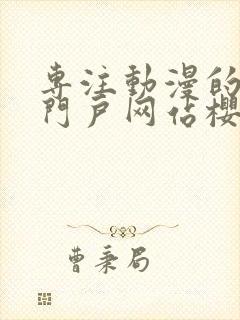 専注動漫的
門戶网佔櫻
曹秉局